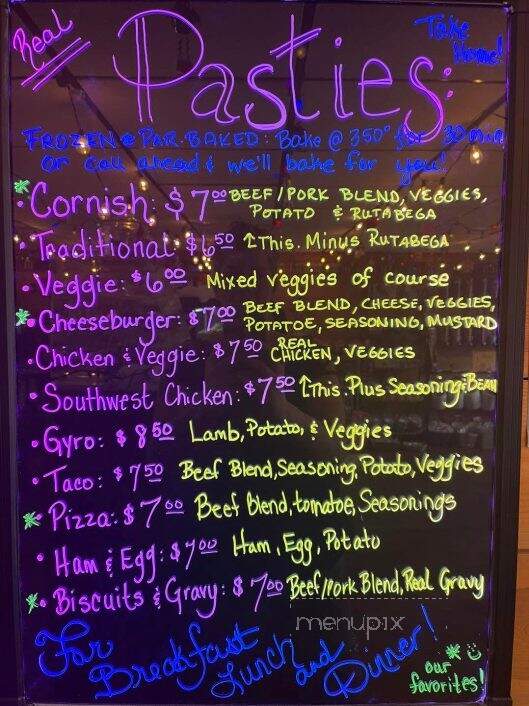 Real
Pasties:
Take
Home!
FROZEN & PAR-BAKED: Bake @ 350° for 30 min
or call ahead & we'll bake for you!
* • Cornish: $7.00 BEEF/PORK BLEND, VEGGIES,
POTATO & RUTABEGA
• Traditional $6.50 ↑This. Minus RUTABEGA
• Veggie: $6.00 Mixed veggies of course
* • Cheeseburger: $7.00 BEEF BLEND, CHEESE, VEGGIES,
POTATOE, SEASONING, MUSTARD
• Chicken & Veggie: $7.50 REAL
CHICKEN, VEGGIES
• Southwest Chicken: $7.50 ↑This. Plus Seasoning & BEAN
• Gyro: $8.50 Lamb, Potato, & Veggies
• Taco: $7.50 Beef Blend, Seasoning, Potato, Veggies
* • Pizza: $7.00 Beef Blend, tomatoe, Seasonings
• Ham & Egg: $7.00 Ham, Egg, Potato
* • Biscuits & Gravy: $7.00 Beef/Pork Blend, Real Gravy
menupix
For
Breakfast
Lunch
and
Dinner!
*
our
favorites!